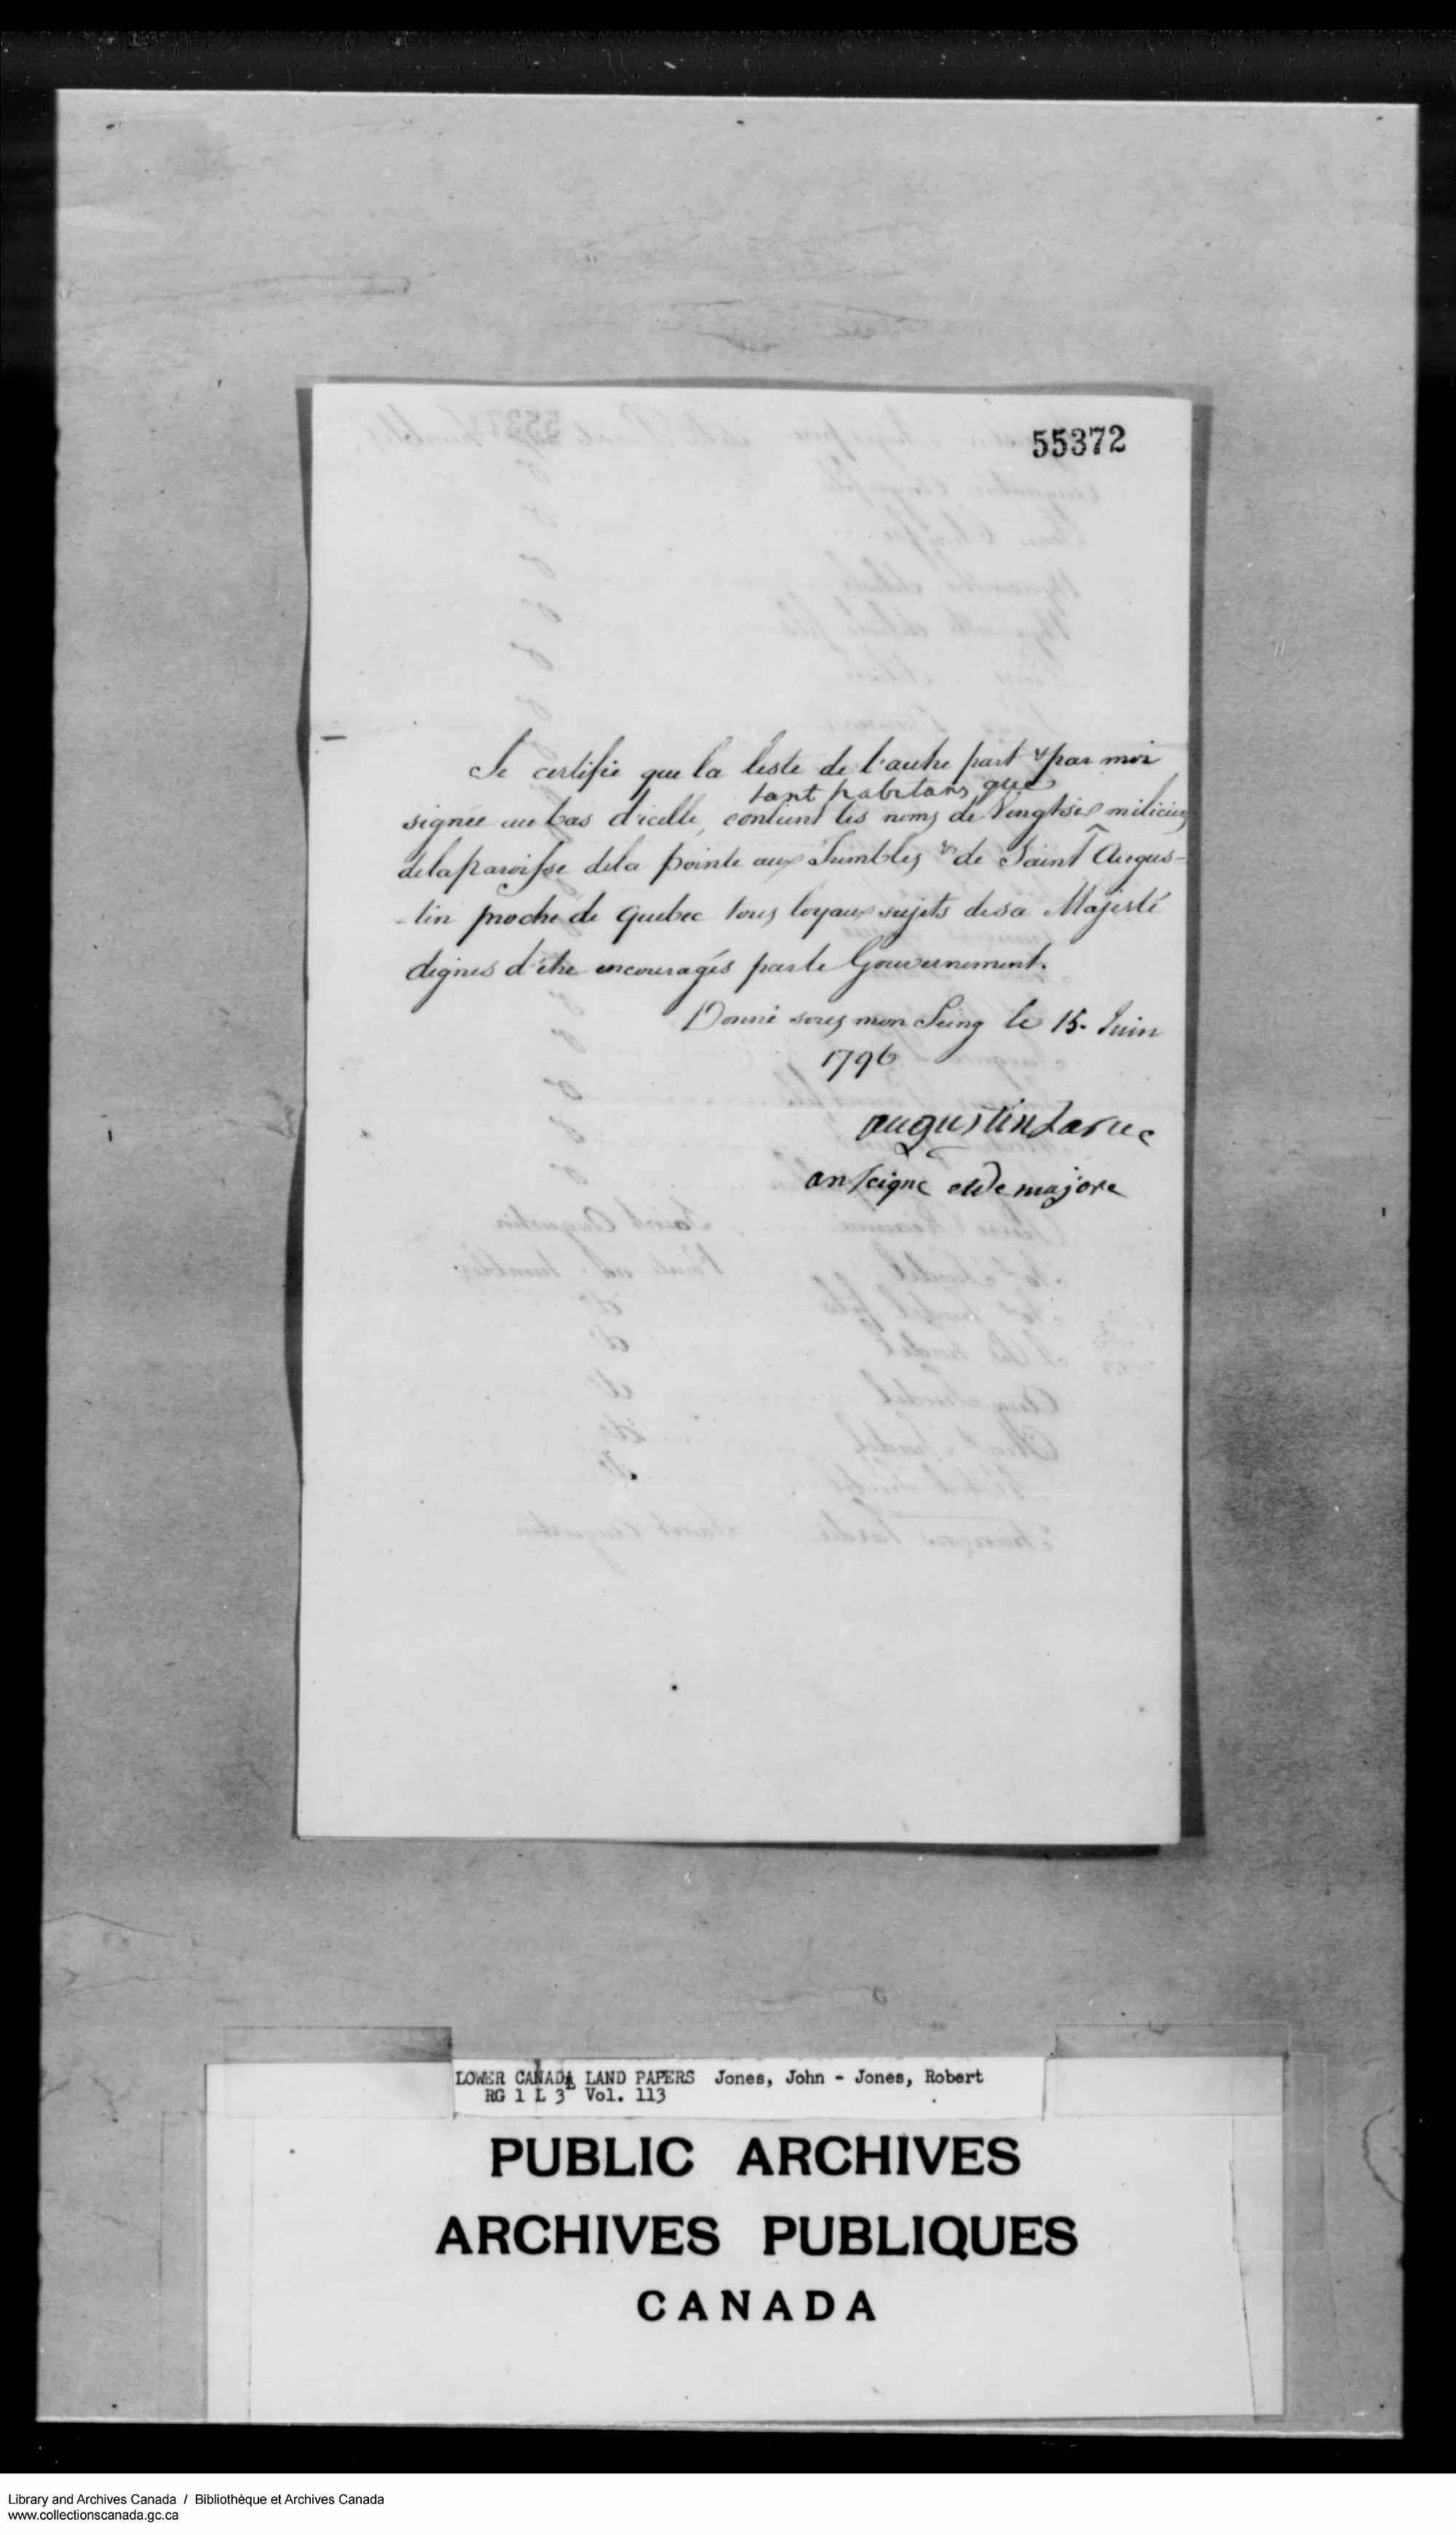 55372
Je certifie que la liste de l'autre part & par moi
tant habitans que
signée au bas d'icelle, contient les noms de Vingtsix miliciens
delaparoisse dela pointe aux Trembles & de Saint Augus-
-tin proche de Quebec tous loyaux sujets desa Majesté
dignes d'être encouragés parle Gouvernement.
Donné sous mon Seing le 15. Juin
1796
augustin Larue
anseigne majore
LOWER CANADA LAND PAPERS Jones, John - Jones, Robert
RG 1 L 3 Vol. 113
PUBLIC ARCHIVES
ARCHIVES PUBLIQUES
CANADA
Library and Archives Canada / Bibliothèque et Archives Canada
www.collectionscanada.gc.ca